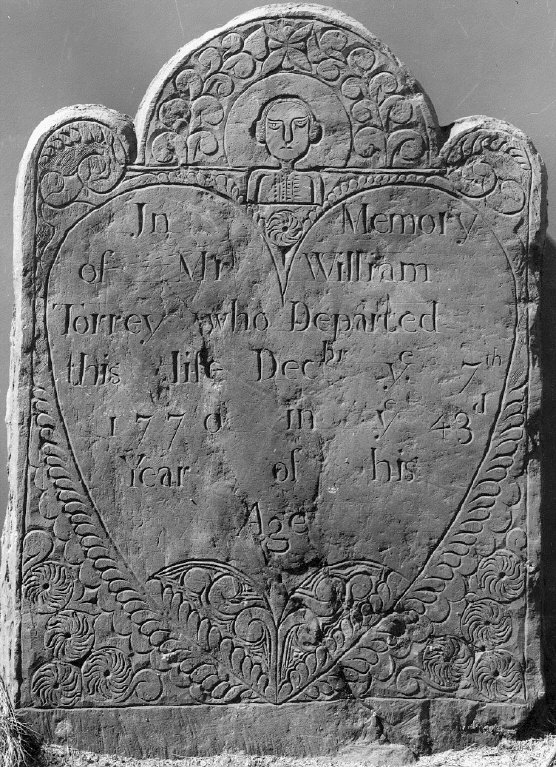 In Memory
of Mr William
Torrey who Departed
this life Decbr ye 7th
1770 in ye 43d
Year of his
Age